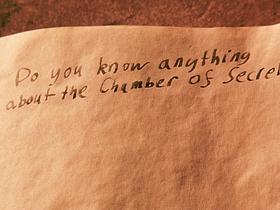 Do you know anything
about the Chamber of Secre